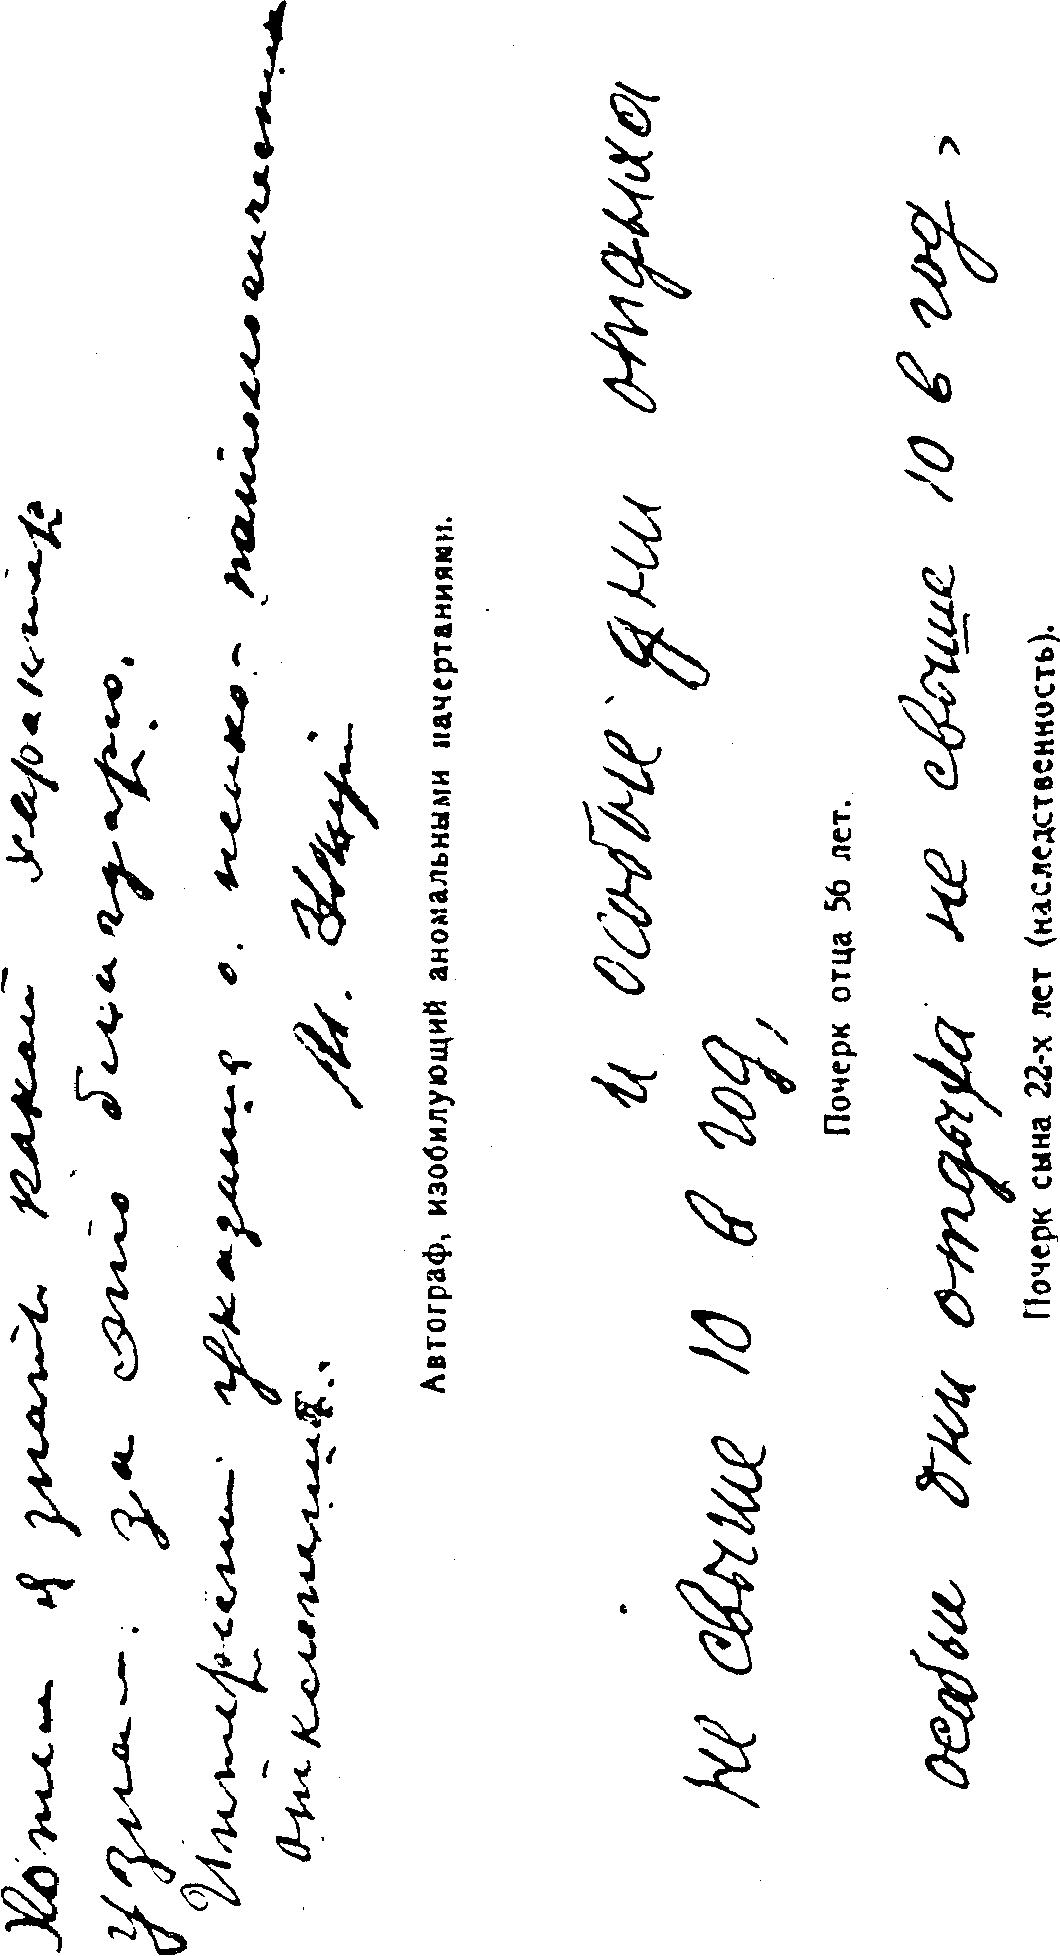 Хотел я знать какой характер
узнал. за это благодарю.
Интересен указания о психо-патологических
отклонениях.
Автограф, изобилующий аномальными начертаниями.
и особые дни отдыха
не свыше 10 в год,
Почерк отца 56 лет.
особые дни отдыха не свыше 10 в год,
Почерк сына 22-х лет (наследственность).